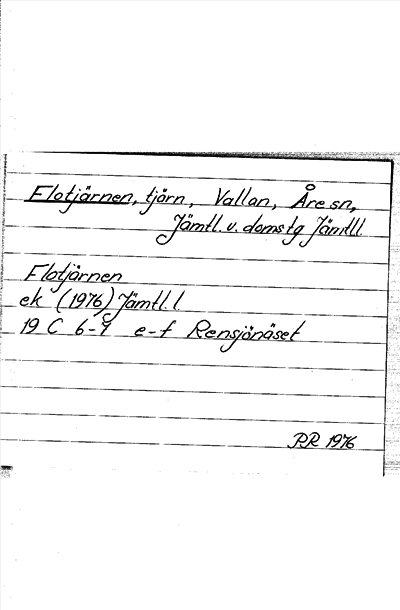 Flotjärnen, tjärn, Vallan, Åre sn,
Jämtl. v. domstg Jämtl.l.
Flotjärnen
ek (1976) Jämtl. l.
19 C 6-7 e-f Rensjönäset
RR 1976